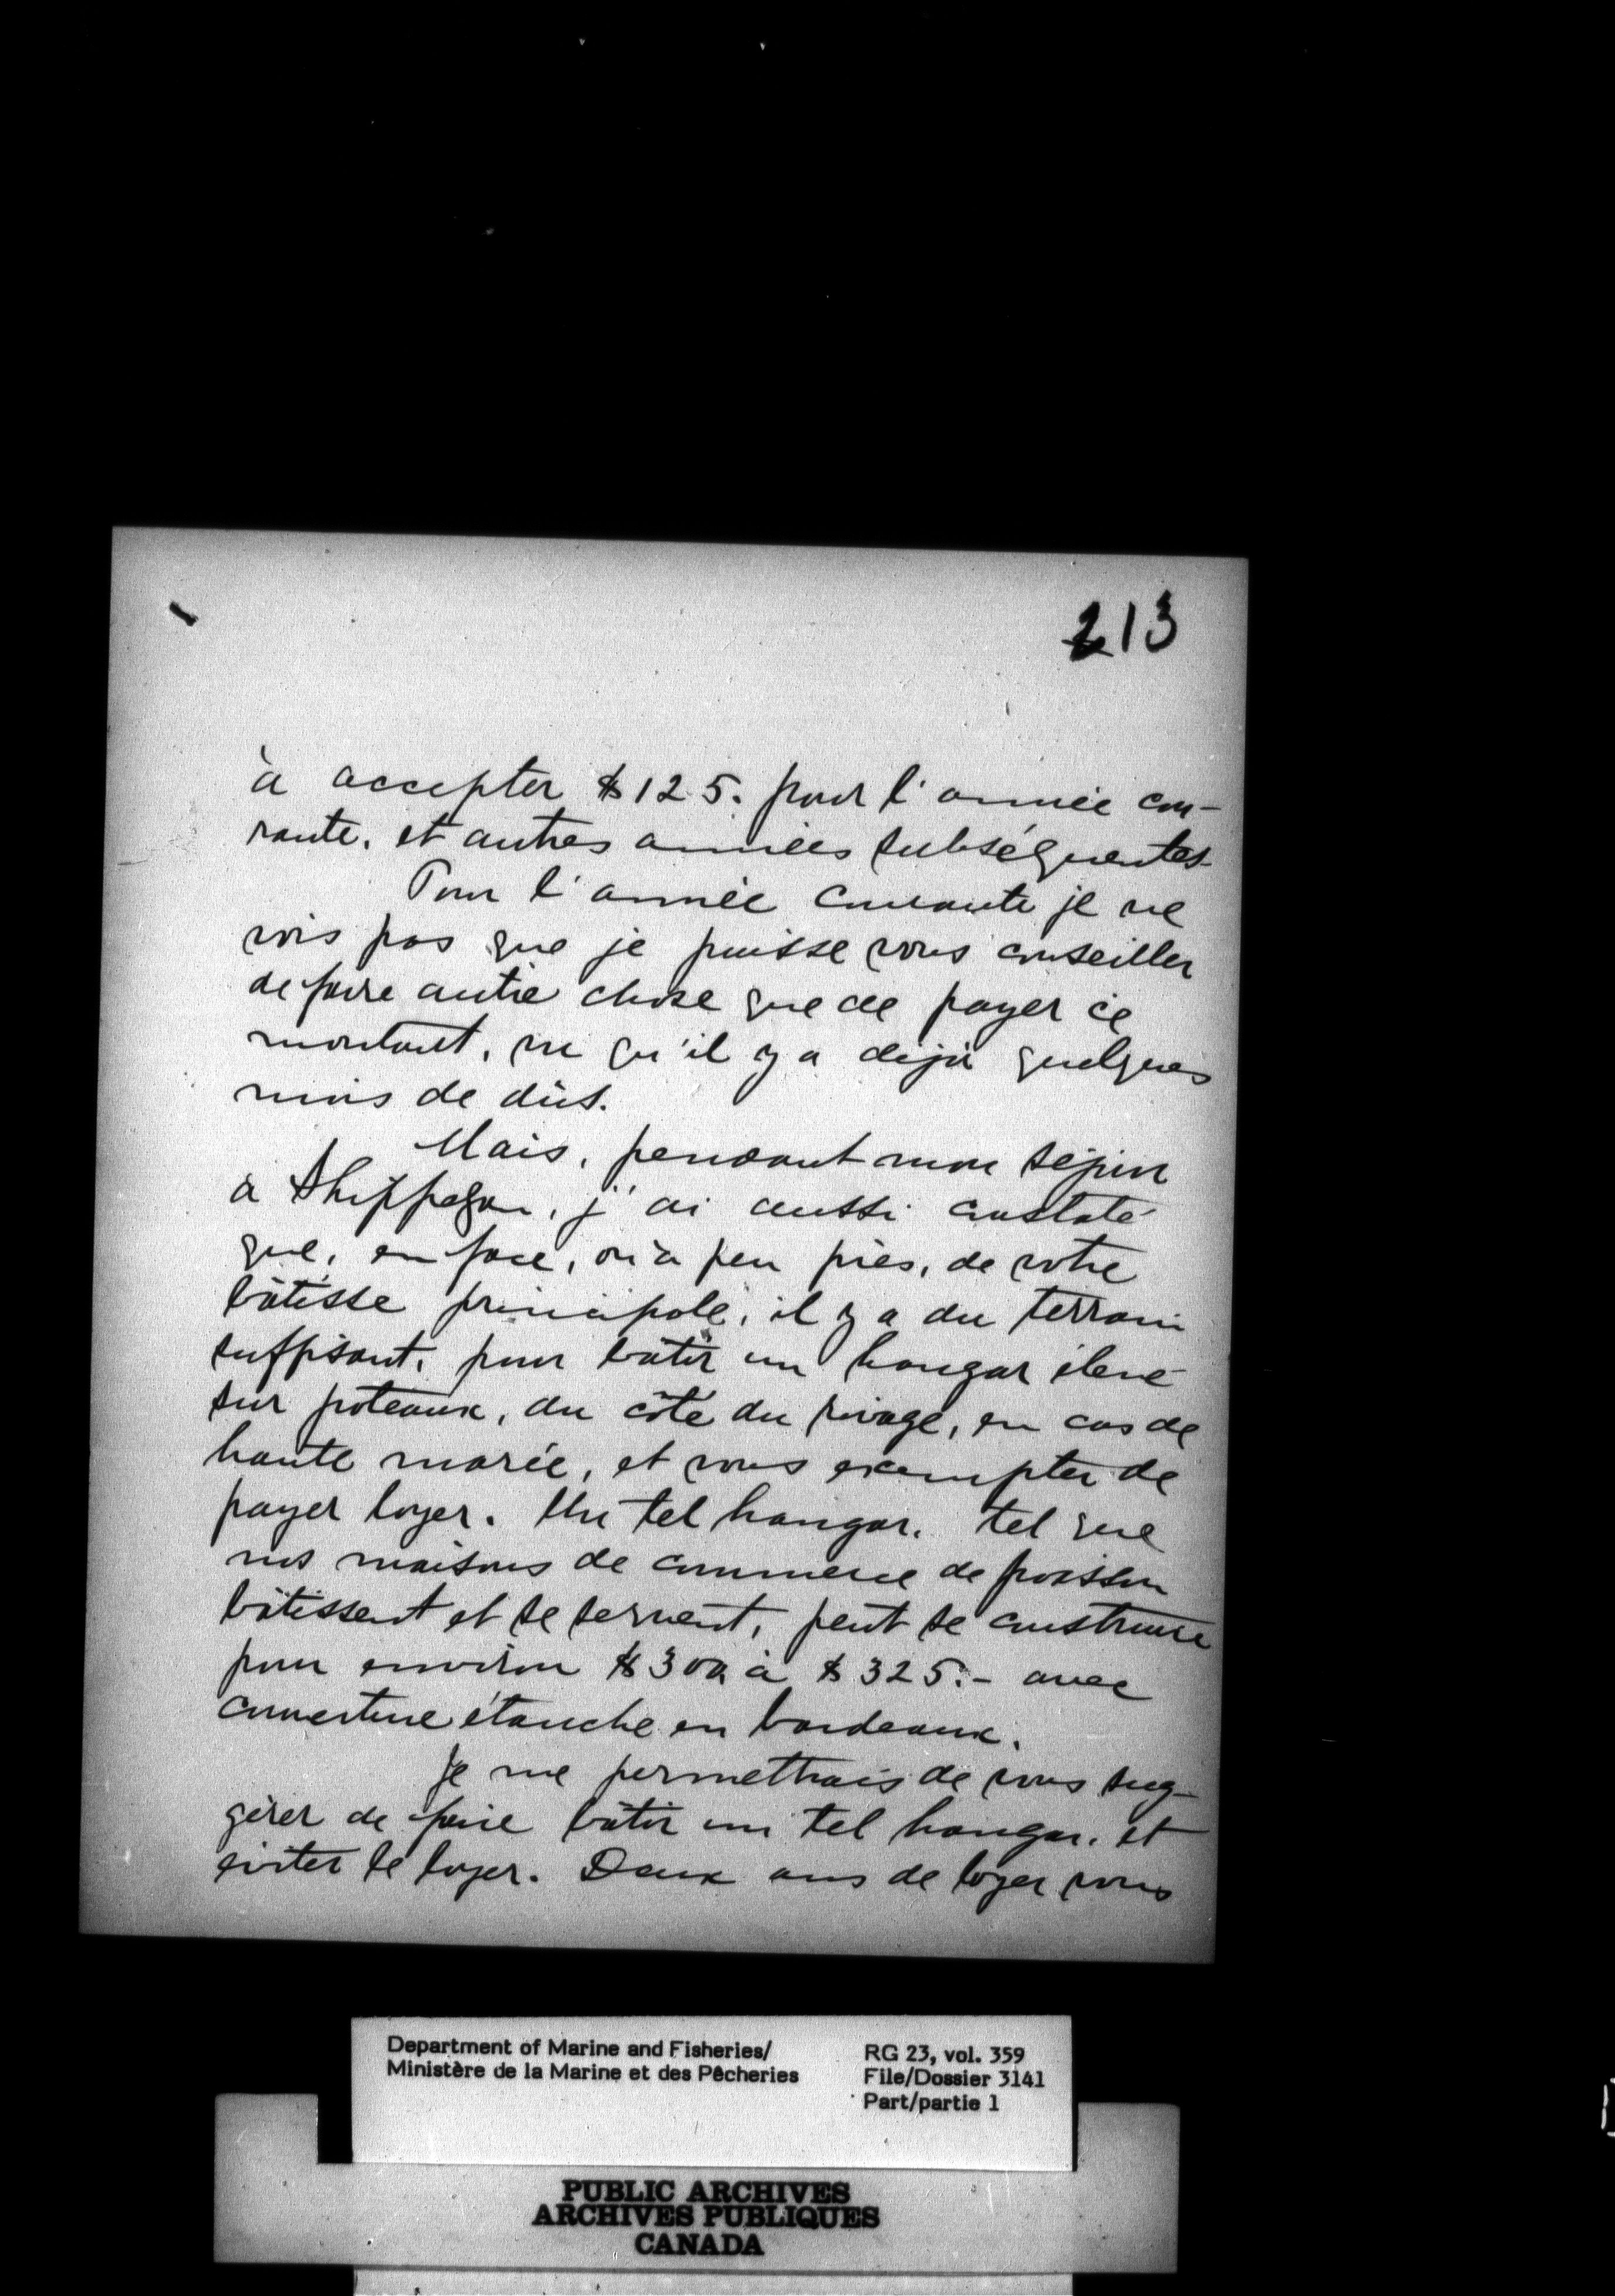 213
à accepter $125. pour l'année cou-
rante. et autres années subséquentes
Pour l'année courante je ne
vois pas que je puisse vous conseiller
de faire autre chose que de payer ce
montant, vu qu'il y a déjà quelques
mois de dûs.
Mais, pendant mon séjour
à Shippegan, j'ai aussi constaté
que, en face, ou à peu près, de votre
bâtisse principale, il y a du terrain
suffisant, pour bâtir un hangar élevé
sur poteaux, du côté du rivage, en cas de
haute marée, et vous exempter de
payer loyer. Un tel hangar, tel que
nos maisons de commerce de poisson
bâtissent et se servent, peut se construire
pour environ $300 à $325.- avec
couverture étanche en bardeaux.
Je me permettrais de vous sug-
gérer de faire bâtir un tel hangar, et
éviter le loyer. Deux ans de loyer vous
Department of Marine and Fisheries/
Ministère de la Marine et des Pêcheries
RG 23, vol. 359
File/Dossier 3141
Part/partie 1
PUBLIC ARCHIVES
ARCHIVES PUBLIQUES
CANADA